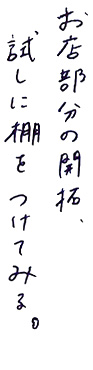 お店部分の開拓、
試しに棚をつけてみる。